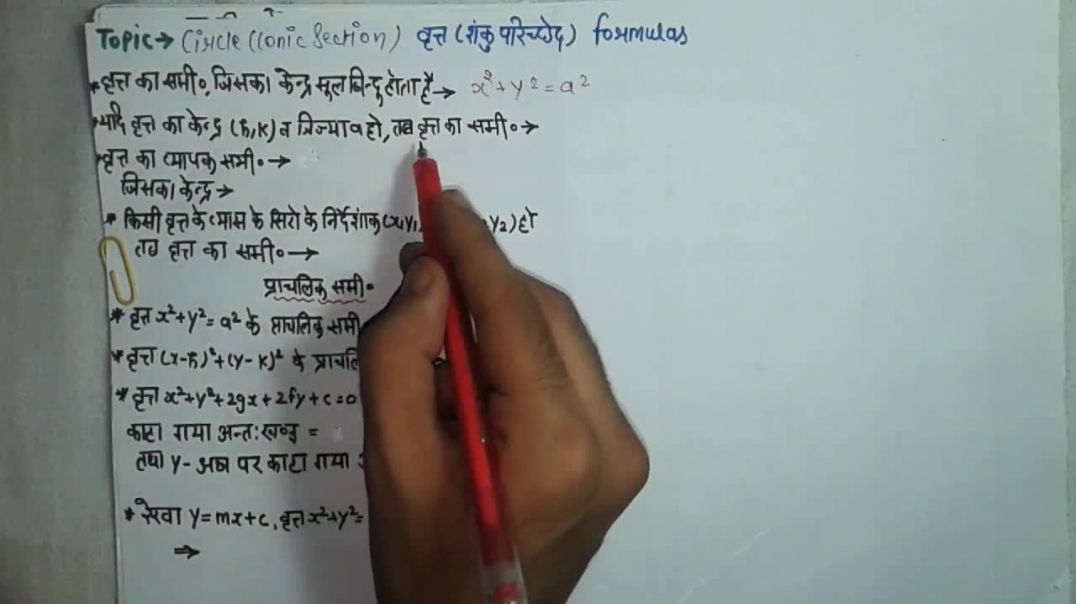 Topic→ Circle (Conic Section) वृत्त (शंकु परिच्छेद) formulas
* वृत्त का समी० जिसका केन्द्र मूल बिन्दु होता है → x² + y² = a²
* यदि वृत्त का केन्द्र (h, k) व त्रिज्या a हो, तब वृत्त का समी० →
* वृत्त का व्यापक समी० →
जिसका केन्द्र →
* किसी वृत्त के व्यास के सिरो के निर्देशांक (x₁y₁ y₂) हो
तब वृत्त का समी० →
प्राचलिक समी०
* वृत्त x²+y²= a² के प्राचलिक समी
* वृत्त (x-h)²+(y-k)² के प्राचलि
* वृत्त x²+y²+2gx+2fy+c=0
काटा गया अन्त:खण्ड =
तथा y-अक्ष पर काटा गया
* रेखा y=mx+c, वृत्त x²+y²=
⇒